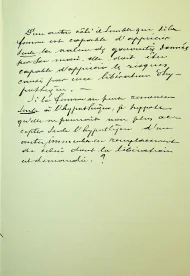 D'un autre côté il semble que si la
femme est capable d'apprécier
seule la valeur des garanties données
par son mari, elle doit être
capable d'apprécier les risques
causés par une libération d'hy-
pothèque. —
Si la femme ne peut renoncer
seule à l'hypothèque, je suppose
qu'elle ne pourrait non plus ac-
cepter seule l'hypothèque d'un
autre immeuble en remplacement
de celui dont la libération
est demandée. ?